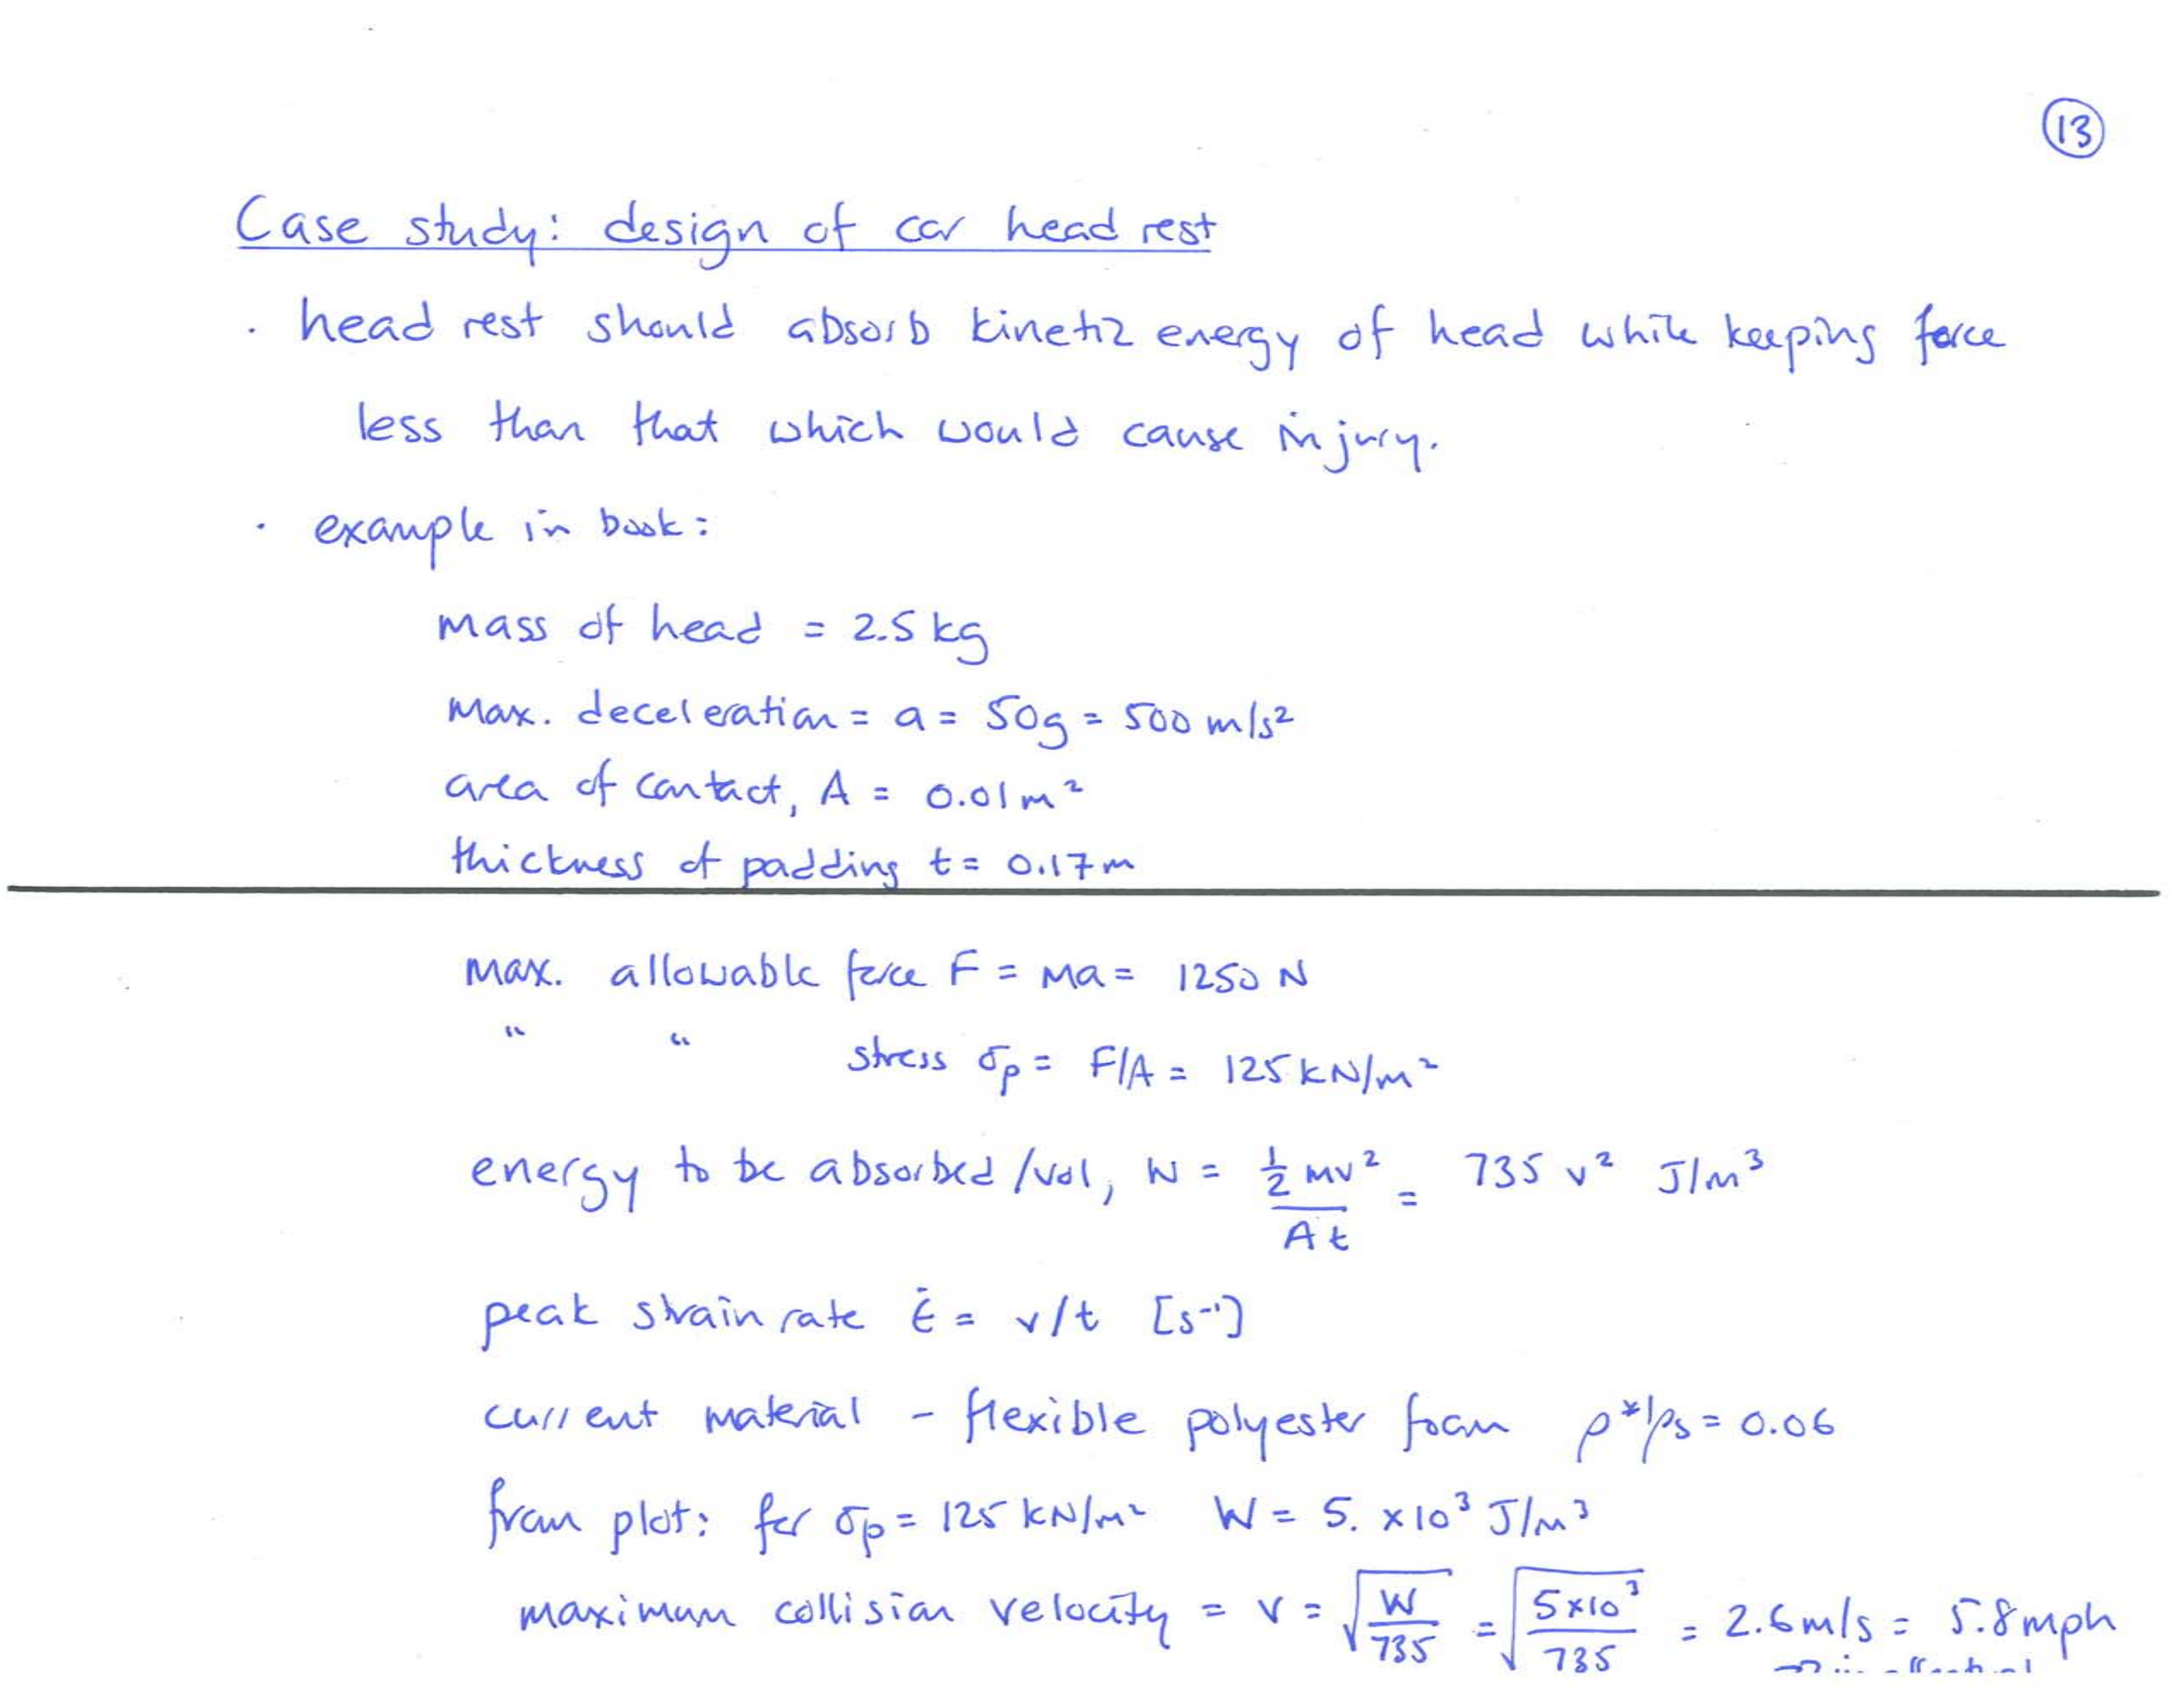 13
Case study: design of car head rest
· head rest should absorb kinetic energy of head while keeping force
less than that which would cause injury.
· example in book:
mass of head = 2.5 kg
max. deceleration = a = 50g = 500 m/s²
area of contact, A = 0.01 m²
thickness of padding t = 0.17 m
max. allowable force F = ma = 1250 N
" " stress σp = F/A = 125 kN/m²
energy to be absorbed /vol, W = ½ mv² / At = 735 v² J/m³
peak strain rate ε̇ = v/t [s⁻¹]
current material - flexible polyester foam ρ*/ρs = 0.06
from plot: for σp = 125 kN/m² W = 5. ×10³ J/m³
maximum collision velocity = v = √(W/735) = √(5×10³/735) = 2.6 m/s = 5.8 mph